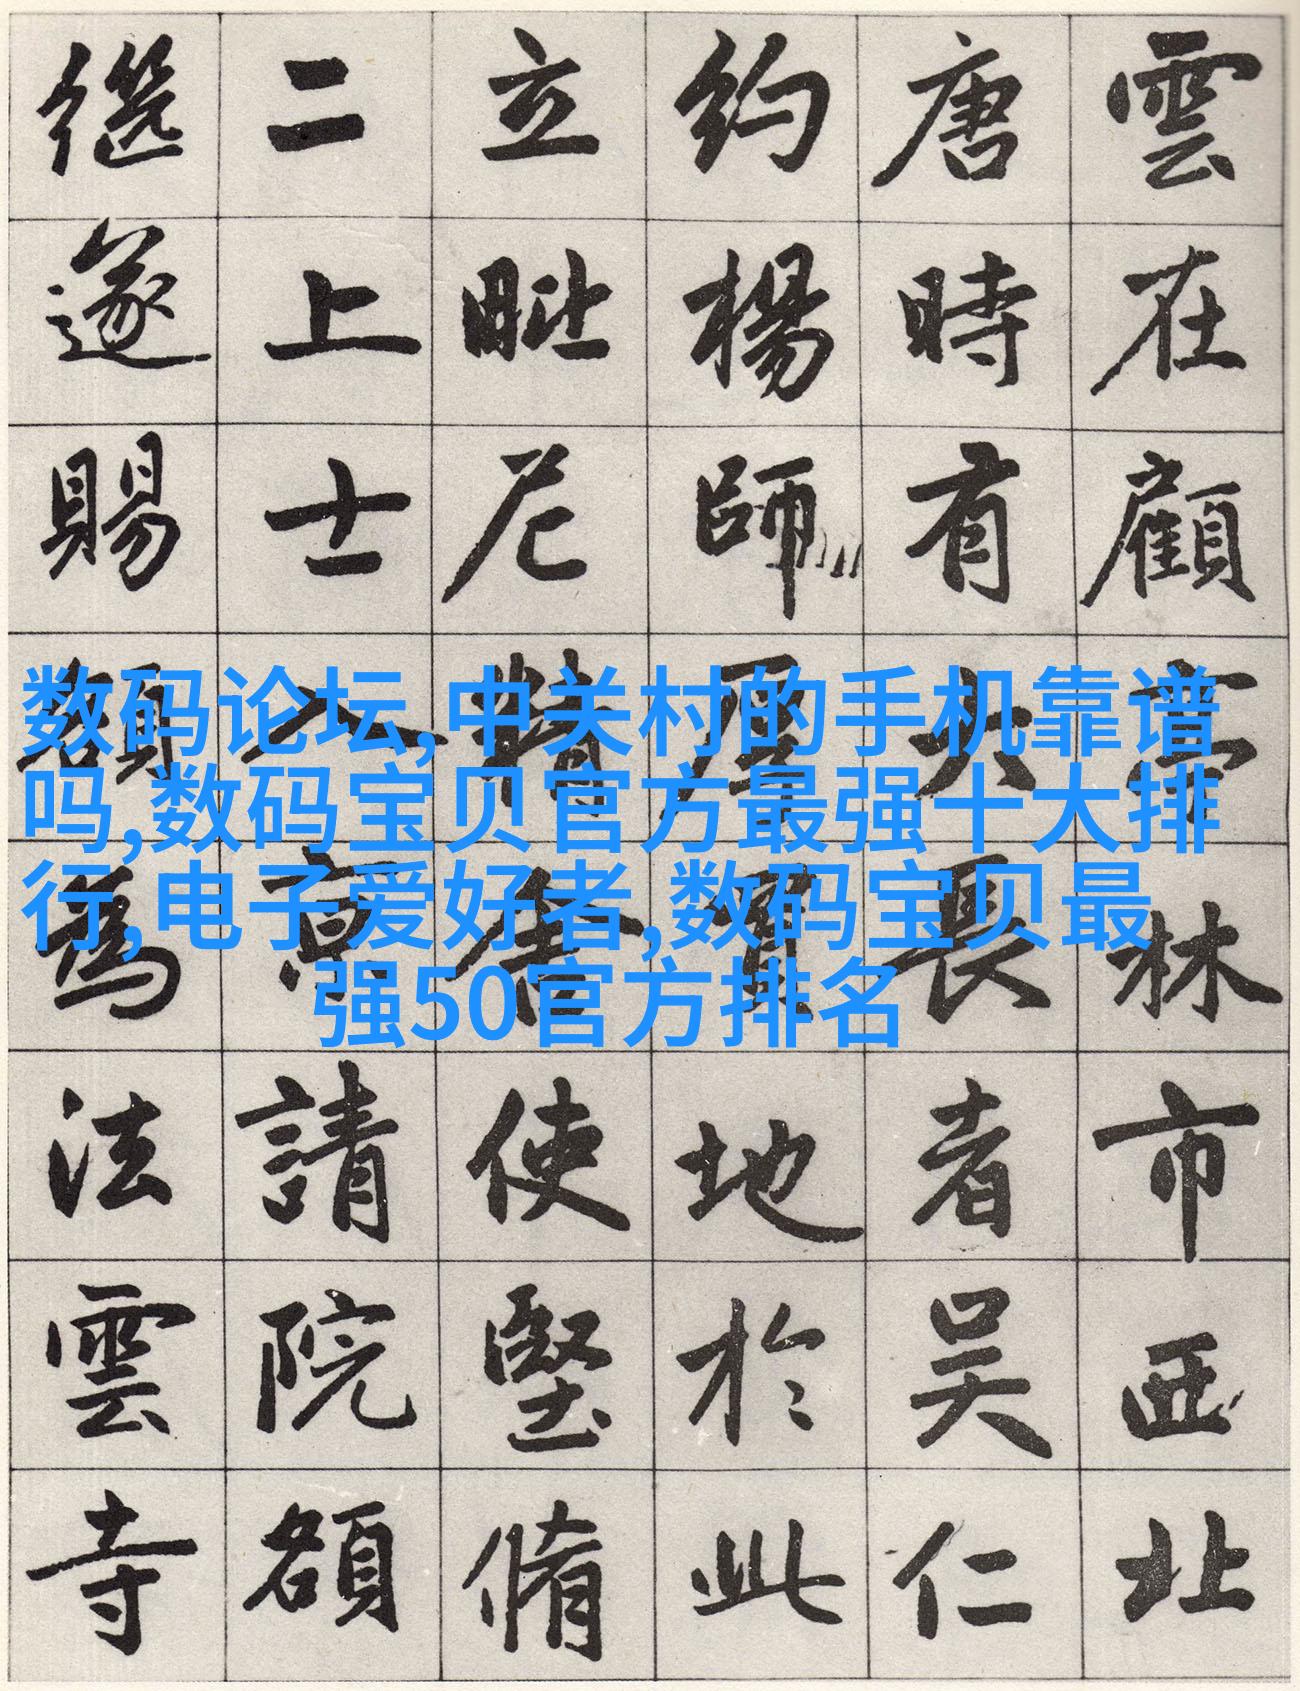 雲在顧亭林市西北
唐時有大長者吴仁
約楊師厚買地於此
立毗尼精舍使堅脩
二上士入京請院額
遂賜額為法雲寺
数码论坛,中关村的手机靠谱
吗,数码宝贝官方最强十大排
行,电子爱好者,数码宝贝最
强50官方排名